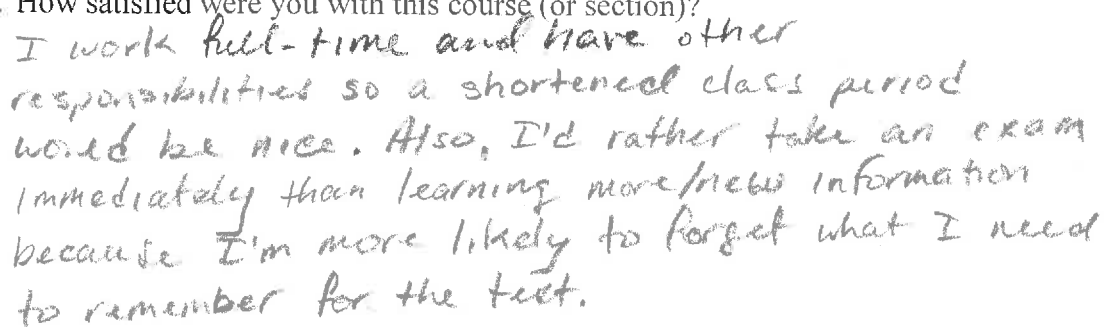 How satisfied were you with this course (or section)?
I work full-time and have other
responsibilities so a shortened class period
would be nice. Also, I'd rather take an exam
immediately than learning more/new information
because I'm more likely to forget what I need
to remember for the test.